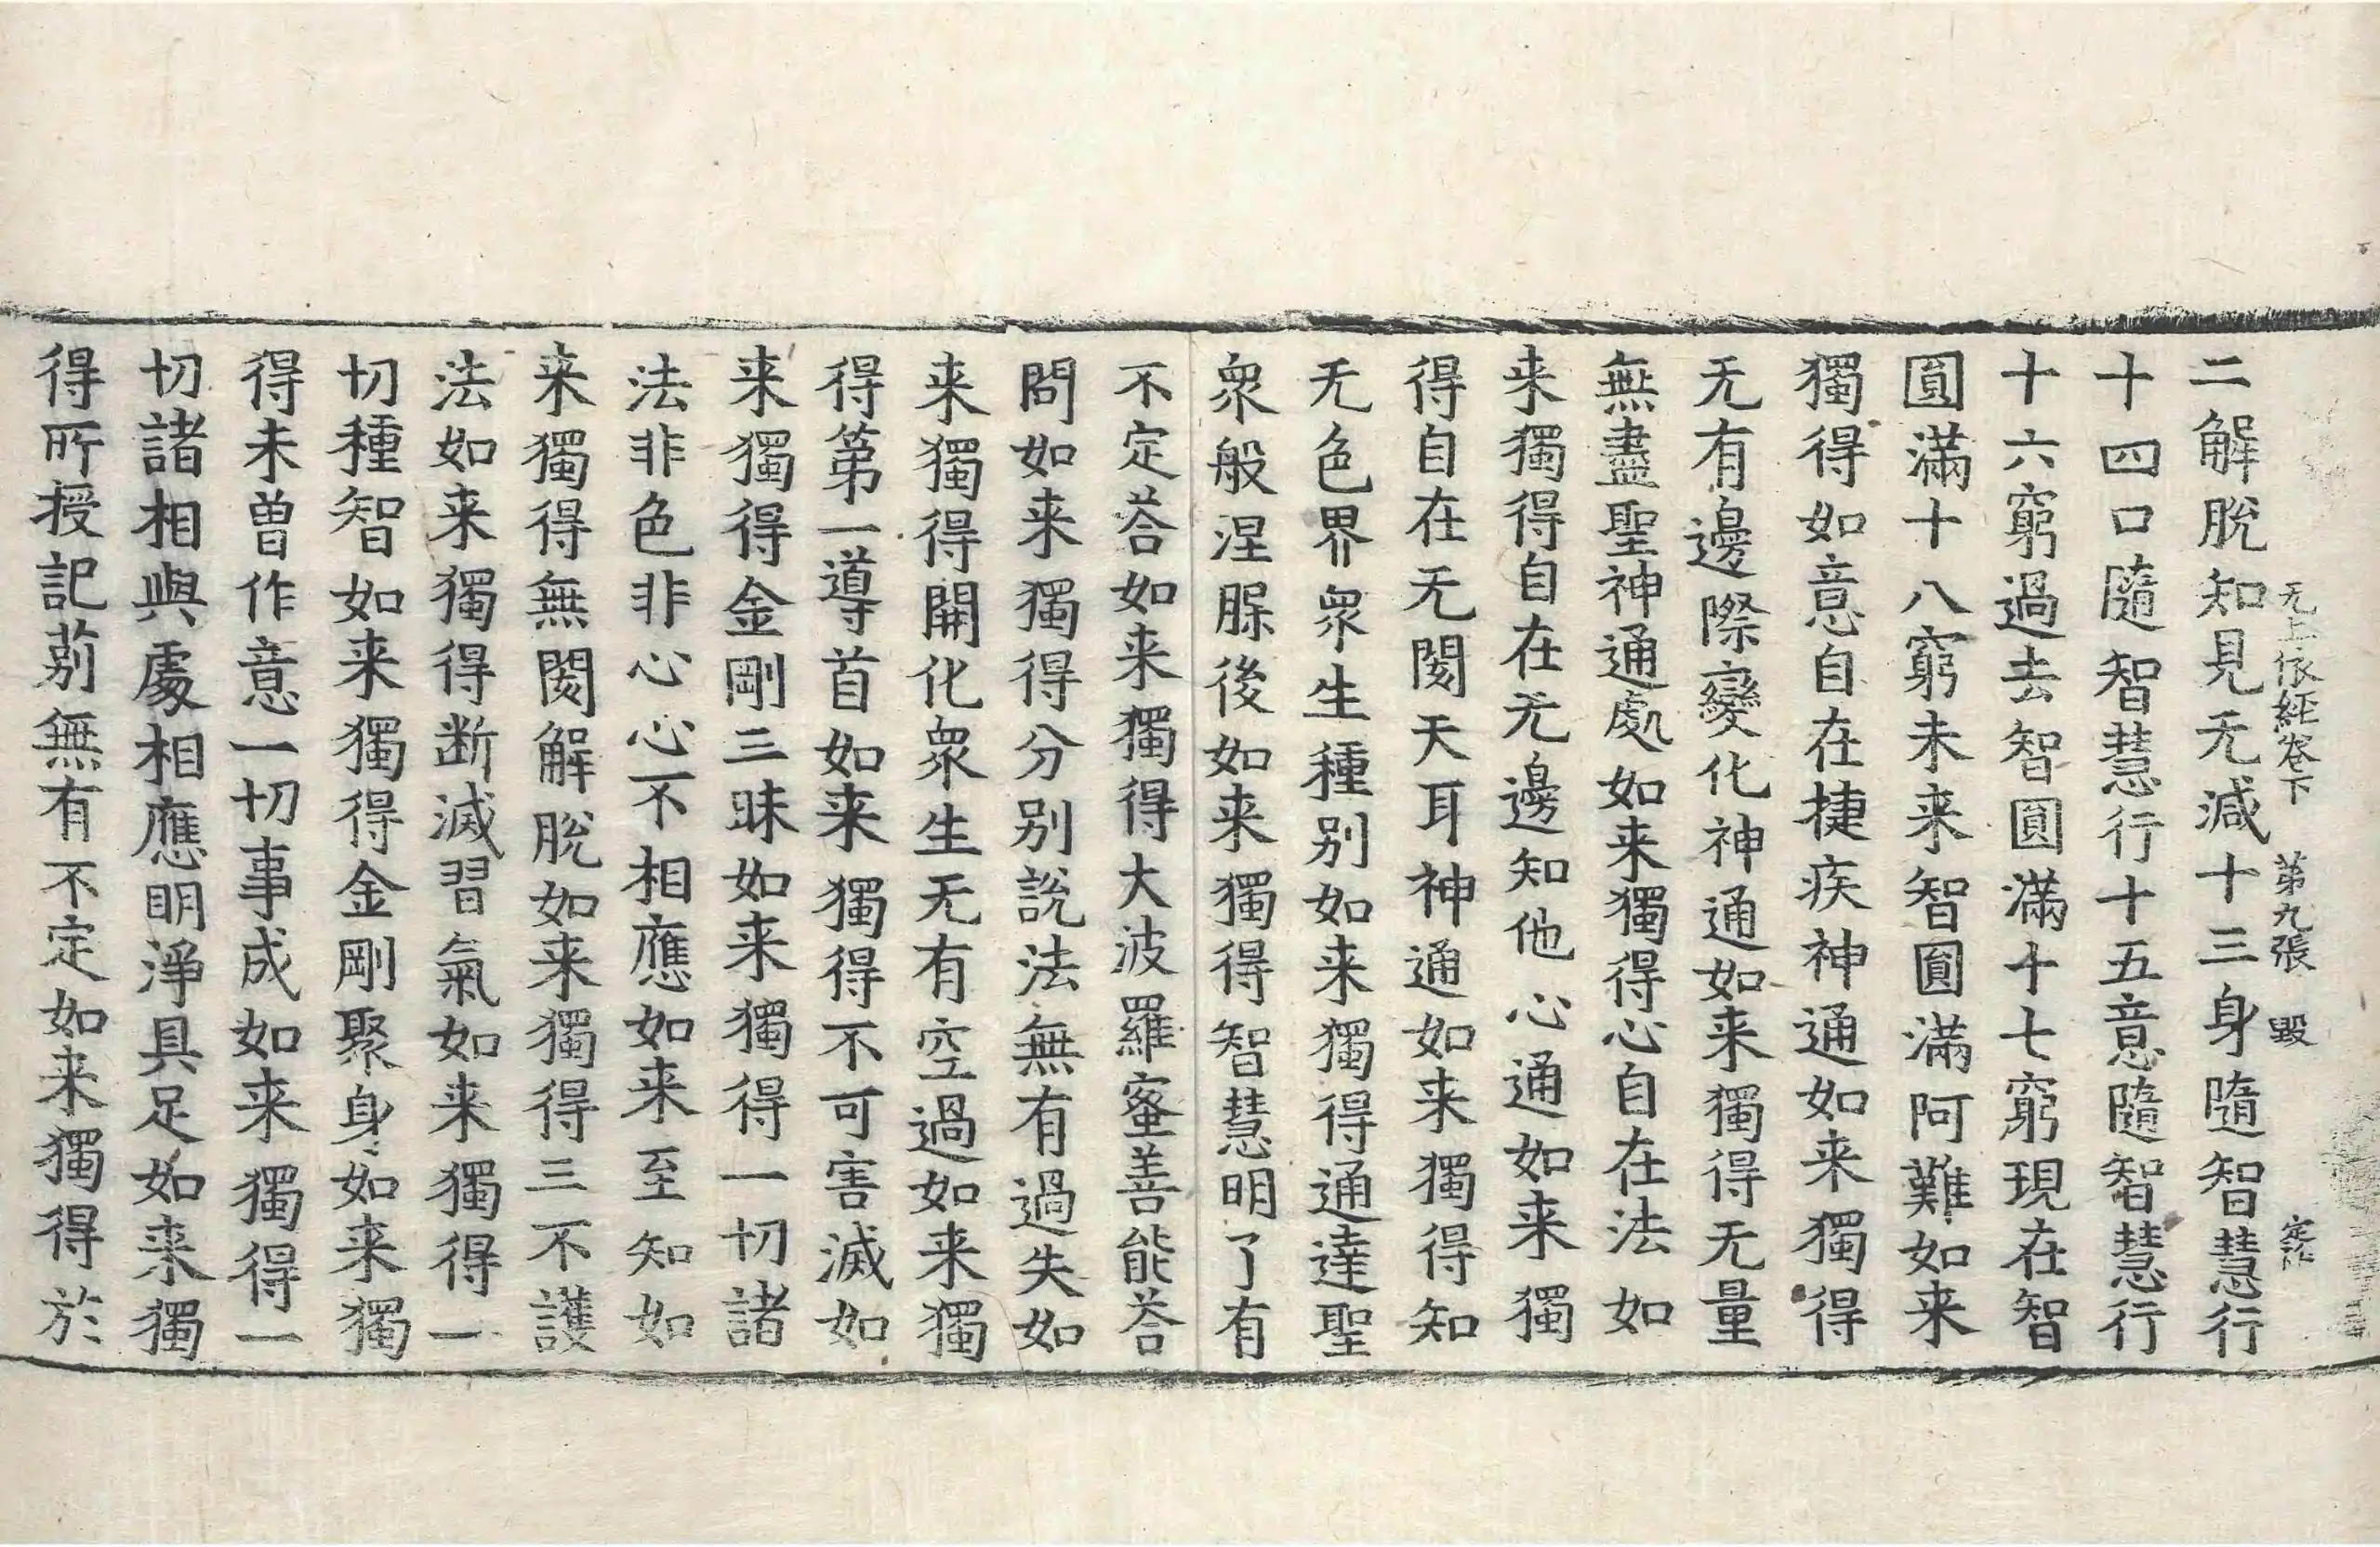 无上依經卷下 第九張 毁
二解脫知見无減十三身隨智慧行
十四口隨智慧行十五意隨智慧行
十六窮過去智圓滿十七窮現在智
圓滿十八窮未来智圓滿阿難如来
獨得如意自在捷疾神通如来獨得
无有邊際變化神通如来獨得无量
無盡聖神通處如来獨得心自在法如
来獨得自在无邊知他心通如来獨
得自在无閡天耳神通如来獨得知
无色界衆生種别如来獨得通達聖
衆般涅槃後如来獨得智慧明了有
不定荅如来獨得大波羅蜜善能荅
問如来獨得分别說法無有過失如
来獨得開化衆生无有空過如来獨
得第一導首如来獨得不可害滅如
来獨得金剛三昧如来獨得一切諸
法非色非心心不相應如来至知如
来獨得無閡解脫如来獨得三不護
法如来獨得断滅習氣如来獨得一
切種智如来獨得金剛聚身如来獨
得未曾作意一切事成如来獨得一
切諸相與處相應明淨具足如来獨
得所授記莂無有不定如来獨得於